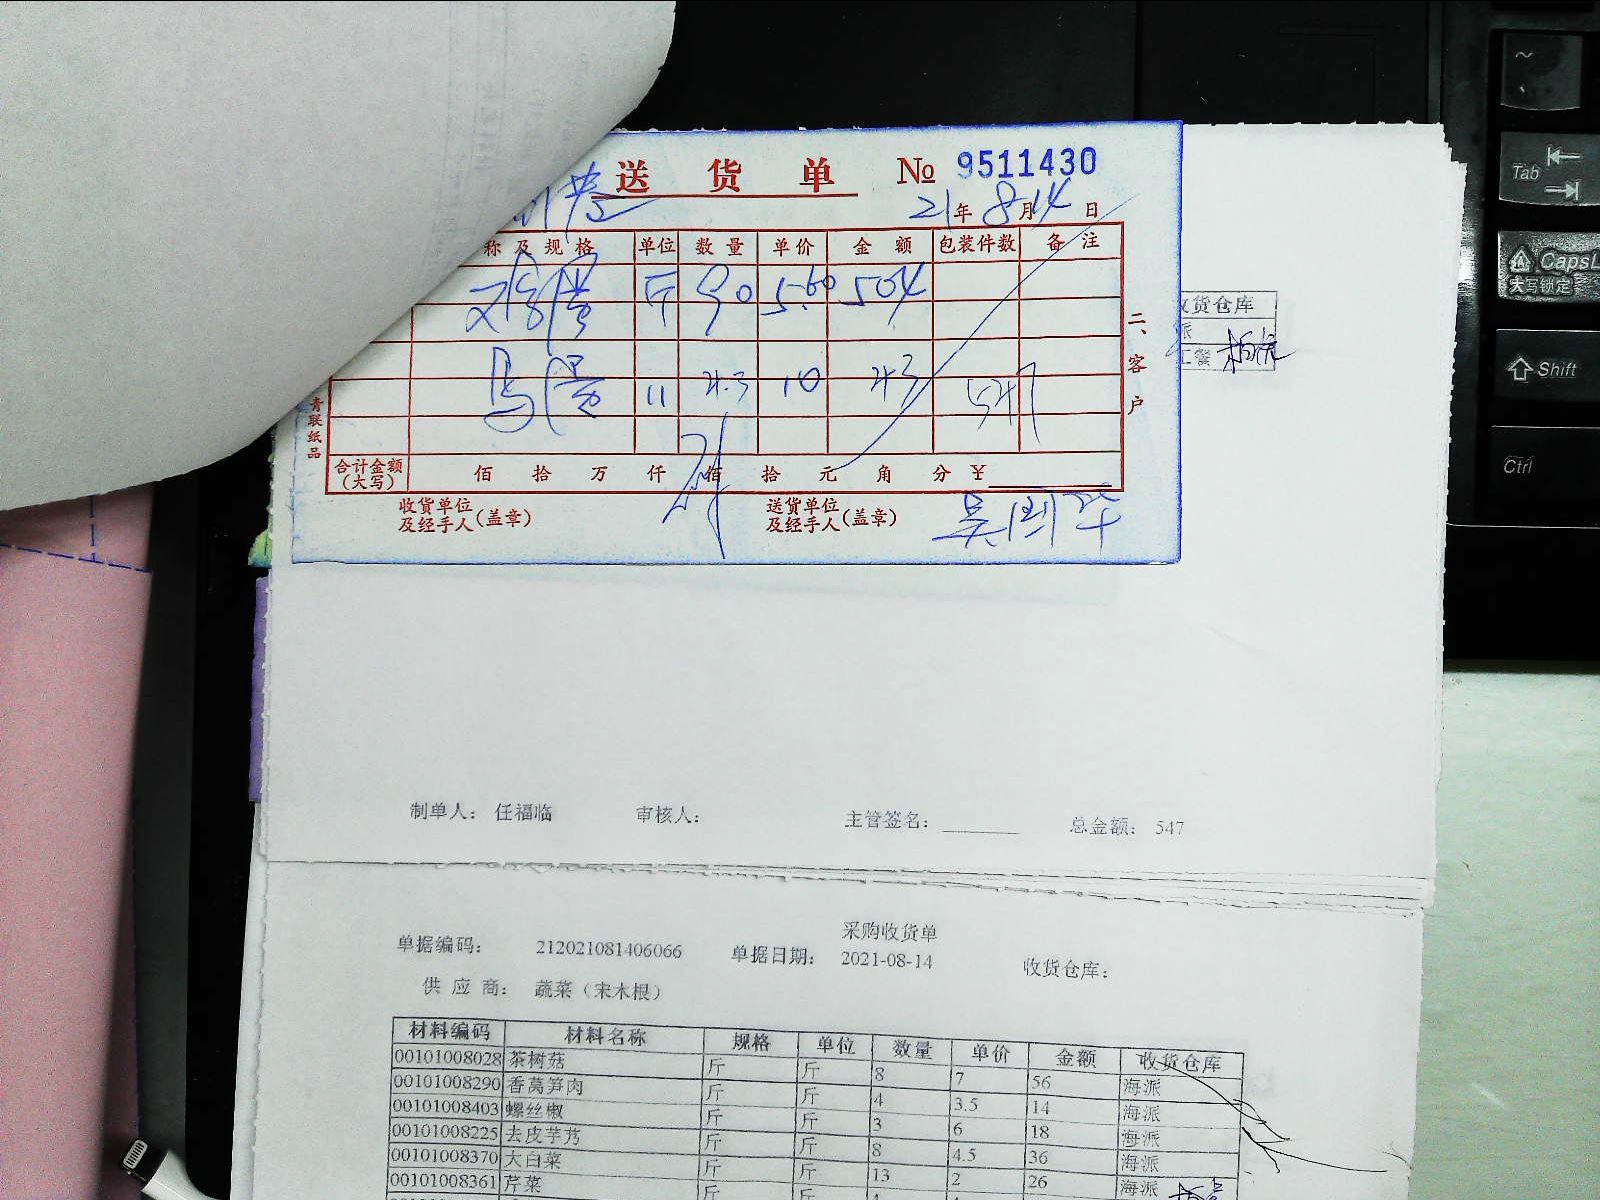 送 货 单 № 9511430
21年 8月14日
称及规格 单位 数量 单价 金额 包装件数 备注
斤 90 5.60 504
马 11 4.3 10 43 547
合计金额(大写) 佰 拾 万 仟 佰 拾 元 角 分 ¥
收货单位及经手人(盖章) 送货单位及经手人(盖章)
二、客户
青联纸品
收货仓库
派
工餐
制单人: 任福临 审核人: 主管签名: 总金额: 547
采购收货单
单据编码: 212021081406066 单据日期: 2021-08-14 收货仓库:
供 应 商: 蔬菜(宋木根)
材料编码 材料名称 规格 单位 数量 单价 金额 收货仓库
00101008028 茶树菇 斤 斤 8 7 56 海派
00101008290 香莴笋肉 斤 斤 4 3.5 14 海派
00101008403 螺丝椒 斤 斤 3 6 18 海派
00101008225 去皮芋艿 斤 斤 8 4.5 36 海派
00101008370 大白菜 斤 斤 13 2 26 海派
00101008361 芹菜 斤 斤 海派
~
Tab
CapsL
大写锁定
Shift
Ctrl